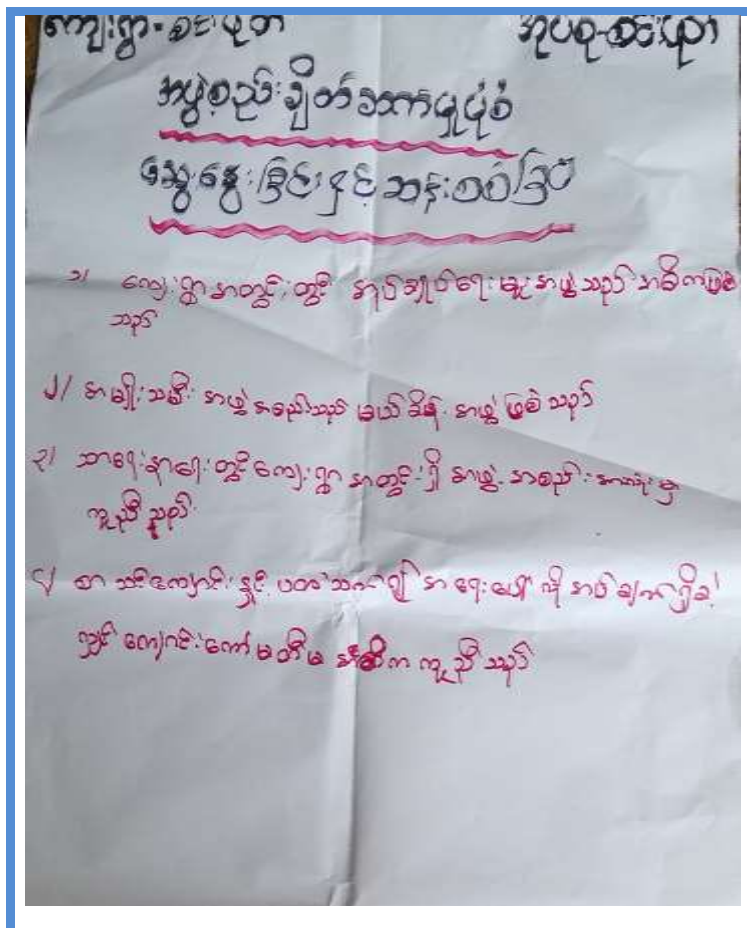 ကျေးရွာ- စင်းပုတ် အုပ်စု-စင်းပုတ်
အဖွဲ့စည်းချိတ်ဆက်မှုပုံစံ
ဆွေးနွေးခြင်းနှင့်ဆန်းစစ်ခြင်း
၁/ ကျေးရွာအတွင်းတွင် အုပ်ချုပ်ရေးမှူးအဖွဲ့သည် အဓိကဖြစ်
သည်
၂/ အမျိုးသမီး အဖွဲ့အစည်းသည် မယ်ခိန် အဖွဲ့ ဖြစ်သည်
၃/ သာရေးနာရေးတွင် ကျေးရွာ အတွင်းရှိ အဖွဲ့အစည်း အားလုံးမှ
ကူညီသည်
၄/ စာသင်ကျောင်းနှင့် ပတ်သက်၍ အရေးပေါ် လိုအပ်ချက်ရှိခဲ့
လျှင် ကျောင်းကော်မတီမှ အဓိက ကူညီသည်